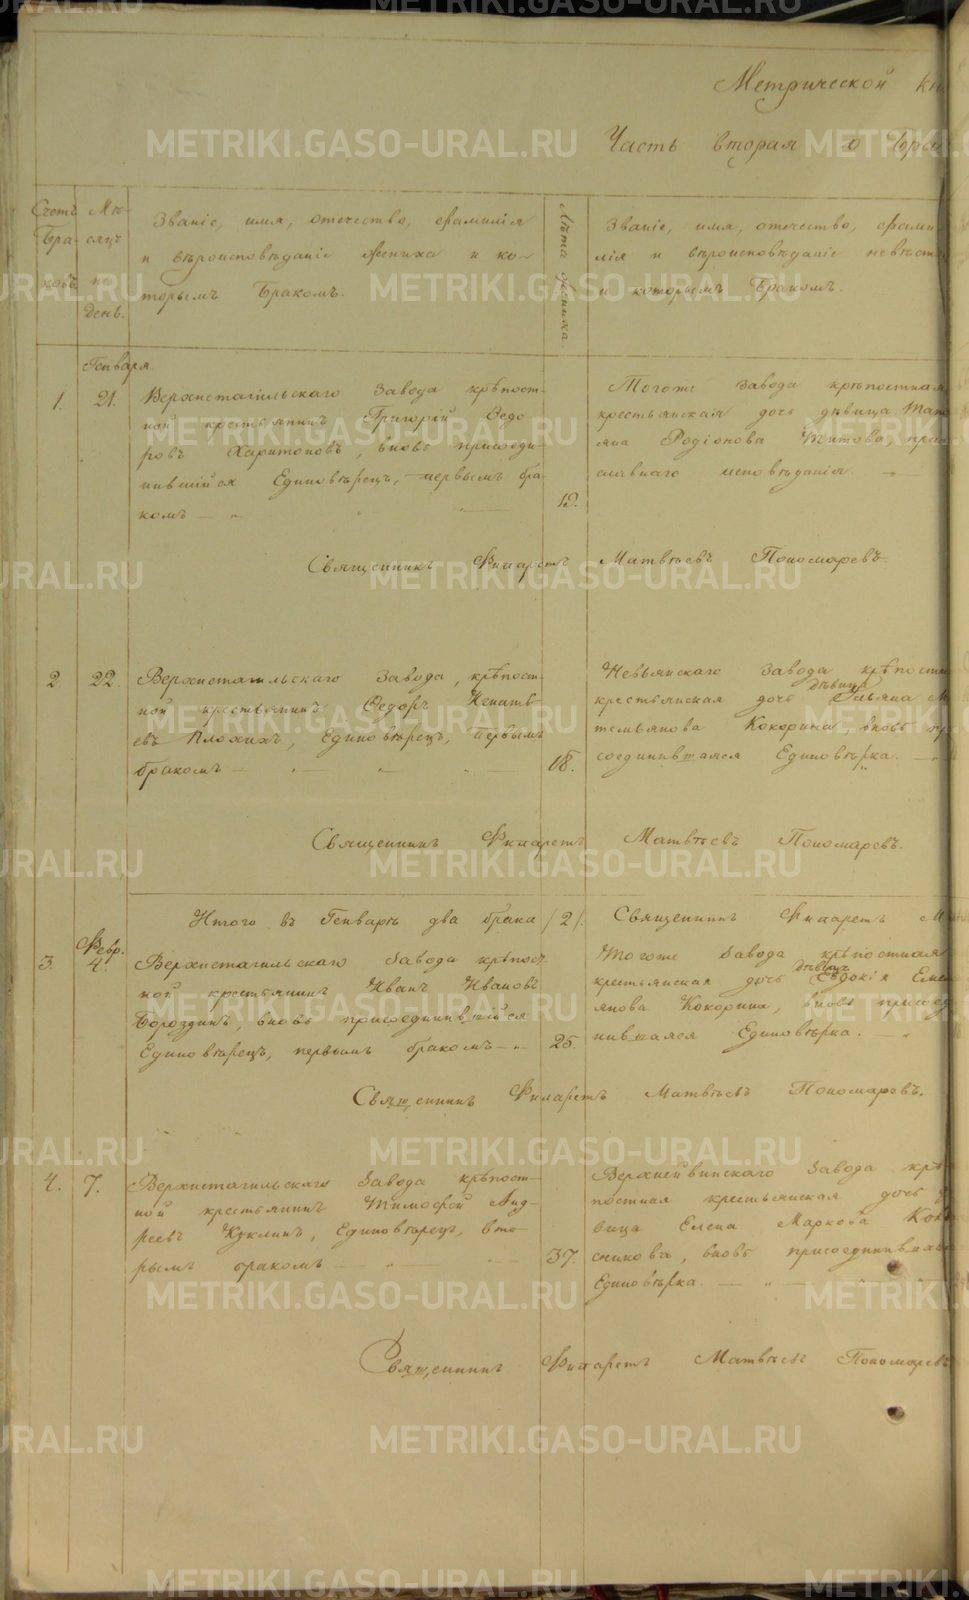 Метрической
Часть вторая о
Счетъ
Бра-
ковъ
Мѣ-
сяцъ
и
день.
Званіе, имя, отечество, фамилія
и вѣроисповѣданіе жениха и ко-
торымъ Бракомъ.
Лѣта жениха.
Званіе, имя, отечество, фами-
лія и вѣроисповѣданіе невѣсты
и которымъ Бракомъ.
Генваря.
1.
21.
Верхнетагильскаго завода крѣпост-
ной крестьянинъ Григорій Ѳедо-
ровъ Харитоновъ, вновь присоеди-
нившійся Единовѣрецъ, первымъ бра-
комъ
19.
Тогоже завода крѣпостная
крестьянская дочь дѣвица Тать-
яна Родіонова Титова, право-
славнаго исповѣданія
Священникъ Филаретъ Матвѣевъ Пономаревъ
2.
22.
Верхнетагильскаго завода, крѣпост-
ной крестьянинъ Ѳедоръ Игнать-
евъ Плохихъ, Единовѣрецъ, первымъ
бракомъ
18.
Невьянскаго завода крѣпостная
дѣвица
крестьянская дочь Ульяна
Кокорина, вновь при-
соединившаяся Единовѣрка.
Священникъ Филаретъ Матвѣевъ Пономаревъ.
Итого въ Генварѣ два брака /2/.
Священникъ Филаретъ
Февр.
3.
4.
Верхнетагильскаго завода крѣпост-
ной крестьянинъ Иванъ Ивановъ
Бороздинъ, вновь присоединившійся
Единовѣрецъ, первымъ бракомъ
25.
Тогоже завода крѣпостная
дѣвица
крестьянская дочь Евдокія Емель-
янова Кокорина, вновь присоеди-
нившаяся Единовѣрка.
Священникъ Филаретъ Матвѣевъ Пономаревъ.
4.
7.
Верхнетагильскаго завода крѣпост-
ной крестьянинъ Тимофей Анд-
реевъ Куклинъ, Единовѣрецъ, вто-
рымъ бракомъ
37.
Верхнейвинскаго завода крѣ-
постная крестьянская дочь дѣ-
вица Елена Маркова
вновь присоединившаяся
Единовѣрка.
Священникъ Филаретъ Матвѣевъ Пономаревъ
METRIKI.GASO-URAL.RU